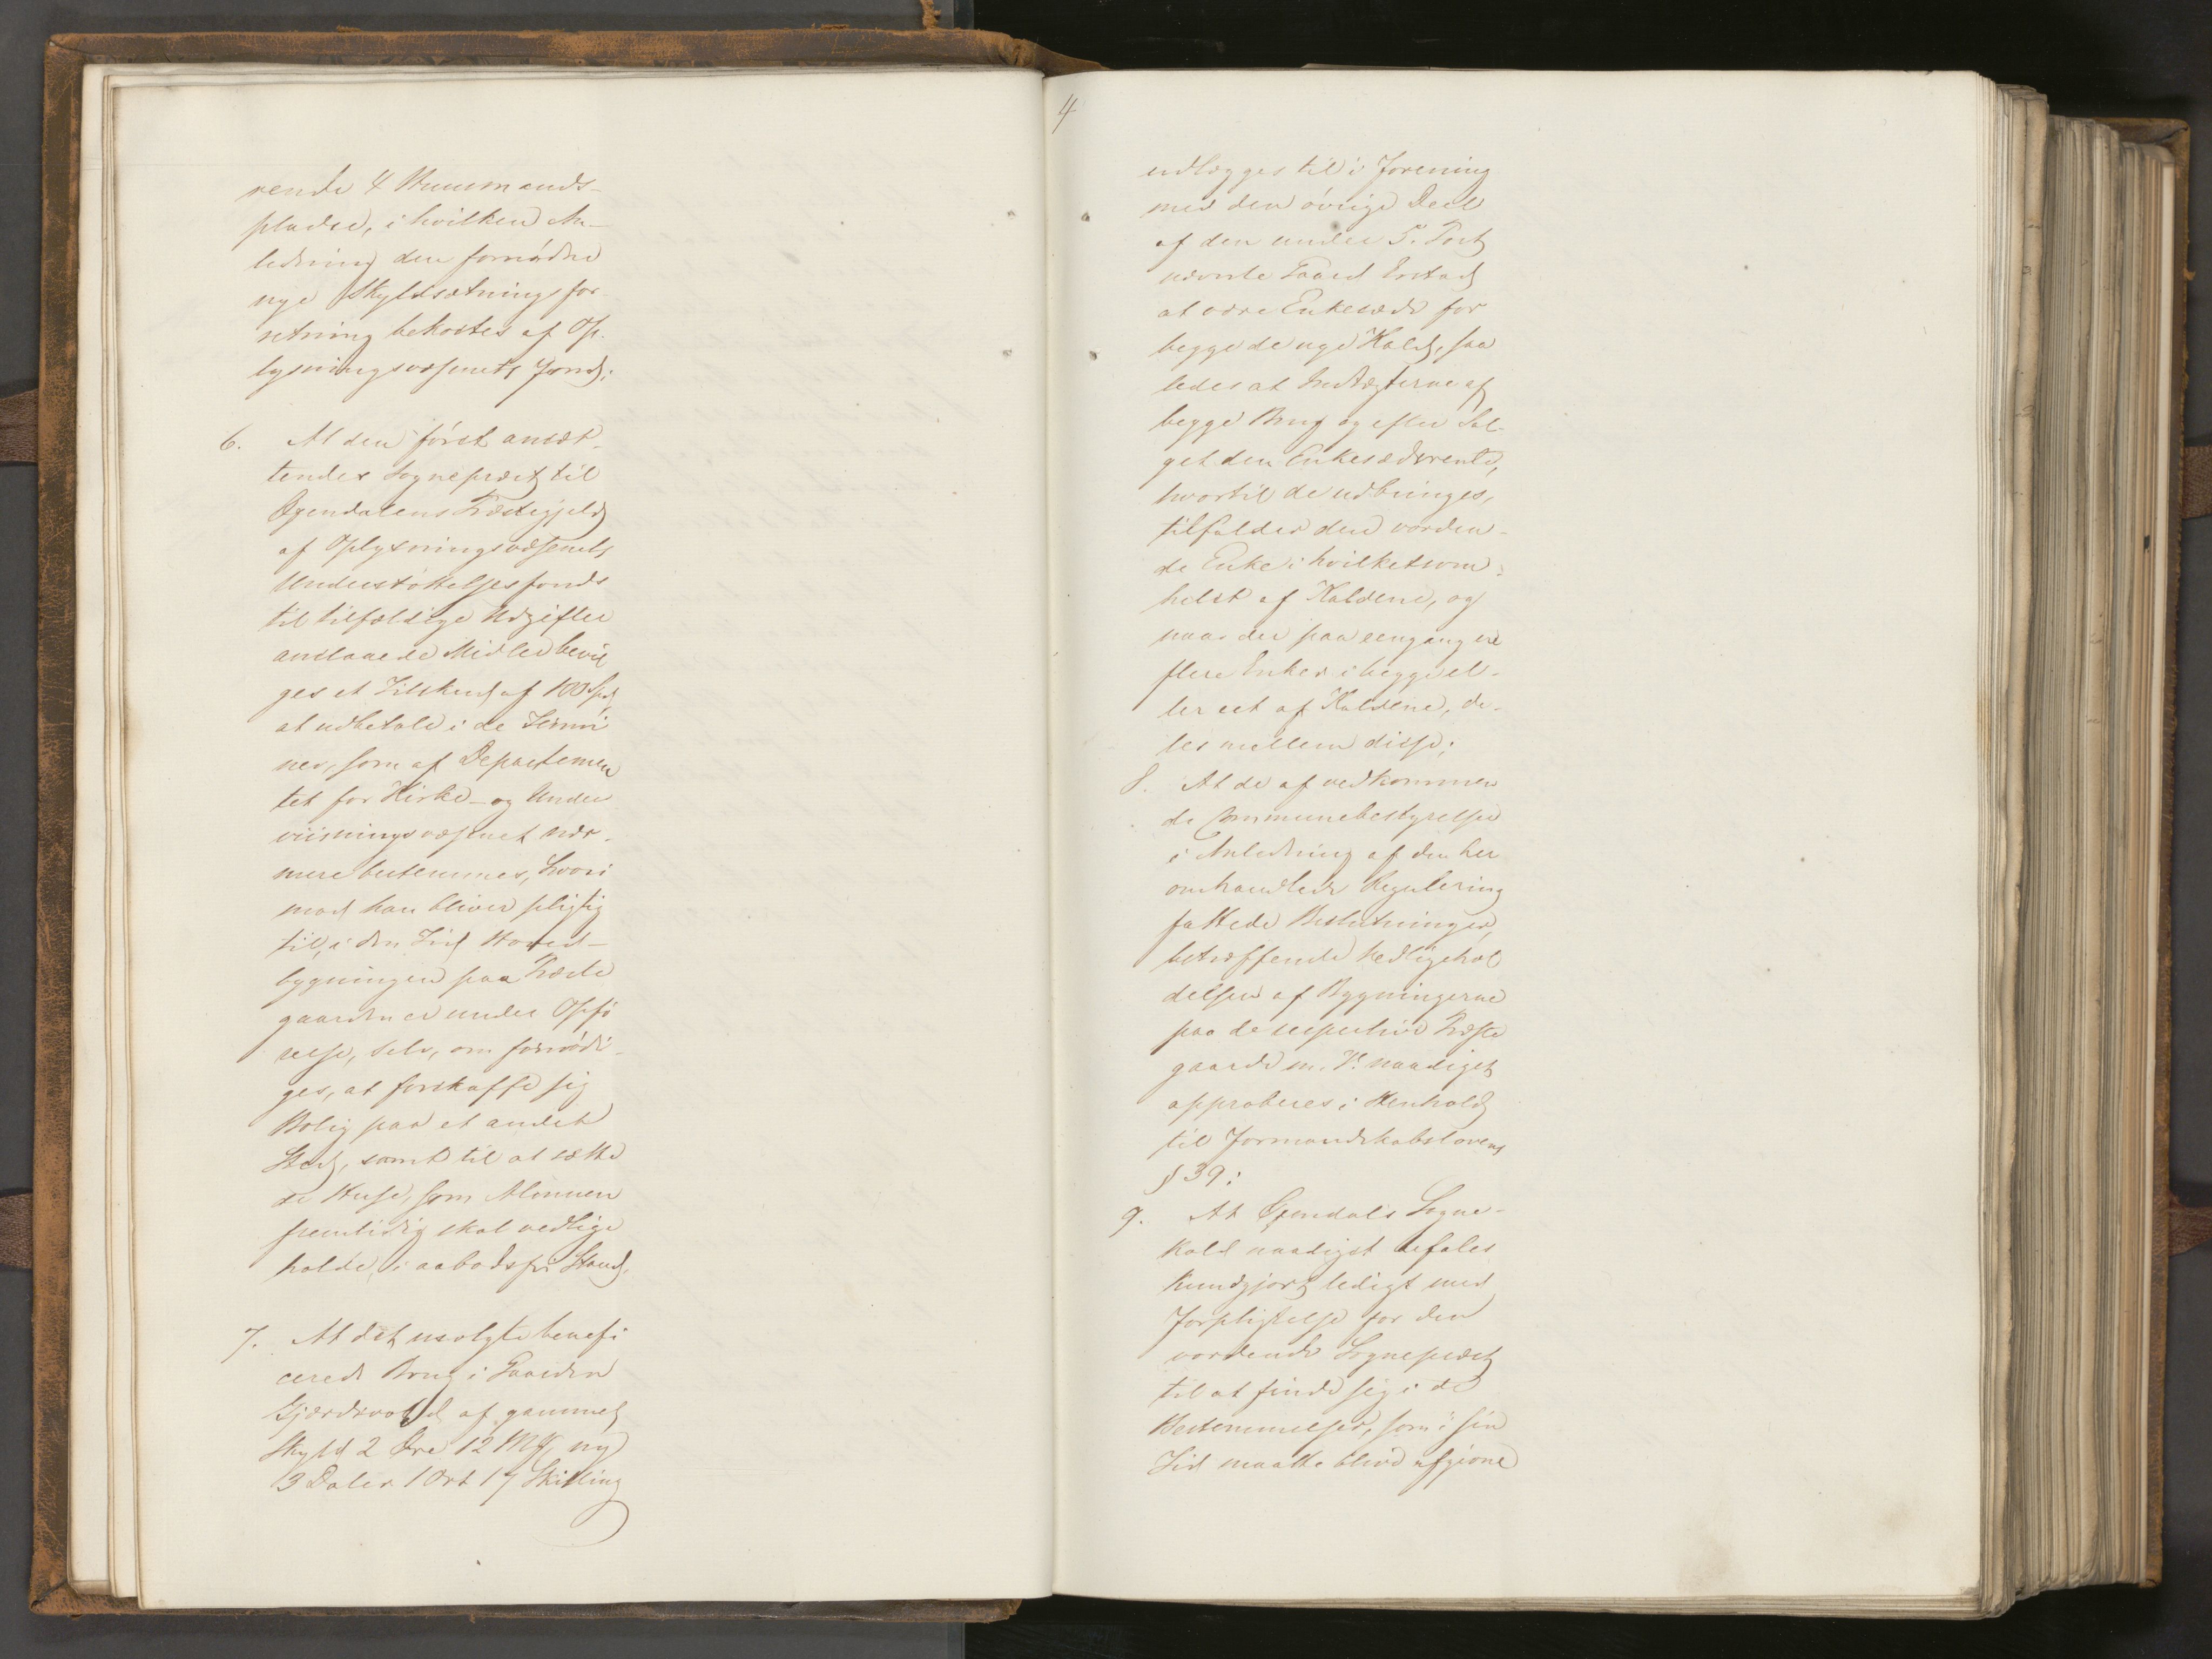 rende 4 Huusmands-
pladse, i hvilken An-
ledning den fornødne
nye Skyldsætningsfor-
retning bekostes af Op-
lysningsvæsenets Fond;
6. At den først ansæt-
tendes Sognepræst til
Øxendalens Præstegjeld
af Oplysningsvæsenets
Understøttelsesfonds
til tilfældige Udgifter
anslaaede Midler bevil
ges et Tilskud af 100 Spd
at udbetale i de Termi
ner, som af Departemen
tet for Kirke- og Under
viisningsvæsenet nær-
mere bestemmes, hvori
mod han bliver pligtig
til, i den Tid Hoved-
bygningen paa Præste
gaarden er under Opfø
relse, selv, om fornødi-
ges, at forskaffe sig
Bolig paa et andet
Sted, samt til at sætte
de Huse, som Almuen
fremtidig skal vedlige
holde, i aabodsfri Stand,
7. At det usolgte benefi
cerede Brug i Gaarden
Gjørdsvold af gammel
Skyld 2 Øre 12 Mk, ny
3 Daler 1 Ort 17 Skilling
4
udlægges til i Forening
med den øvrige Deel
af den under 5. Post
nævnte Gaard Erstad
at være Enkesæde for
begge de nye Kald, saa
ledes at Indtægterne af
begge Brug og efter Sal-
get den Enkesæderente,
hvortil de udbringes,
tilfalder den værden-
de Enke i hvilketsom-
helst af Kaldene, og
naar der paa eengang ere
flere Enker i begge el-
ler eet af Kaldene, de-
les mellem disse;
8. At de af vedkommen
de Communebestyrelser
i Anledning af den her
omhandlede Regulering
fattede Beslutninger,
betræffende Vedligehol
delsen af Bygningerne
paa de respective Præste
gaarde m. V. naadigst
approberes i Henhold
til Formandskabslovens
§ 39;
9. At Øxendals Sogne-
kald naadigst befales
kundgjort ledigt med
Forpligtelse for den
vordende Sognepræst
til at finde sig i de
Bestemmelser, som i sin
Tid maatte blive afgivne